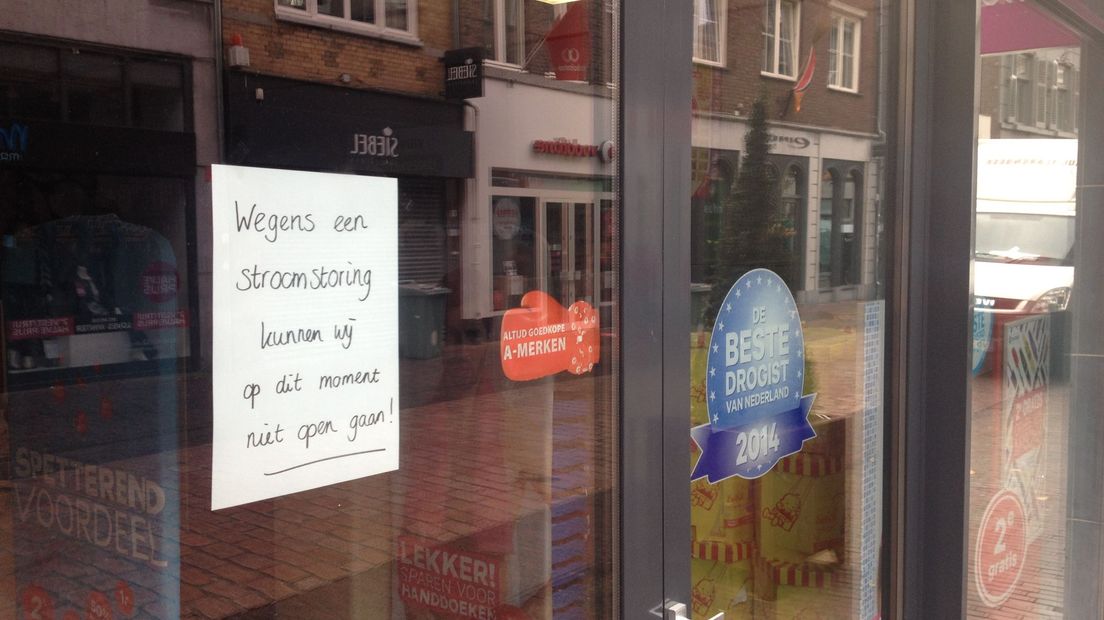 Wegens een
stroomstoring
kunnen wij
op dit moment
niet open gaan!
SIEBEL
SIEBEL
vodafone
ALTIJD GOEDKOPE
A-MERKEN
DE
BESTE
DROGIST
VAN NEDERLAND
2014
SPETTEREND
VOORDEEL
LEKKER!
SPAREN VOOR
HANDDOEKEN
HALVE
PRIJS
2e
gratis